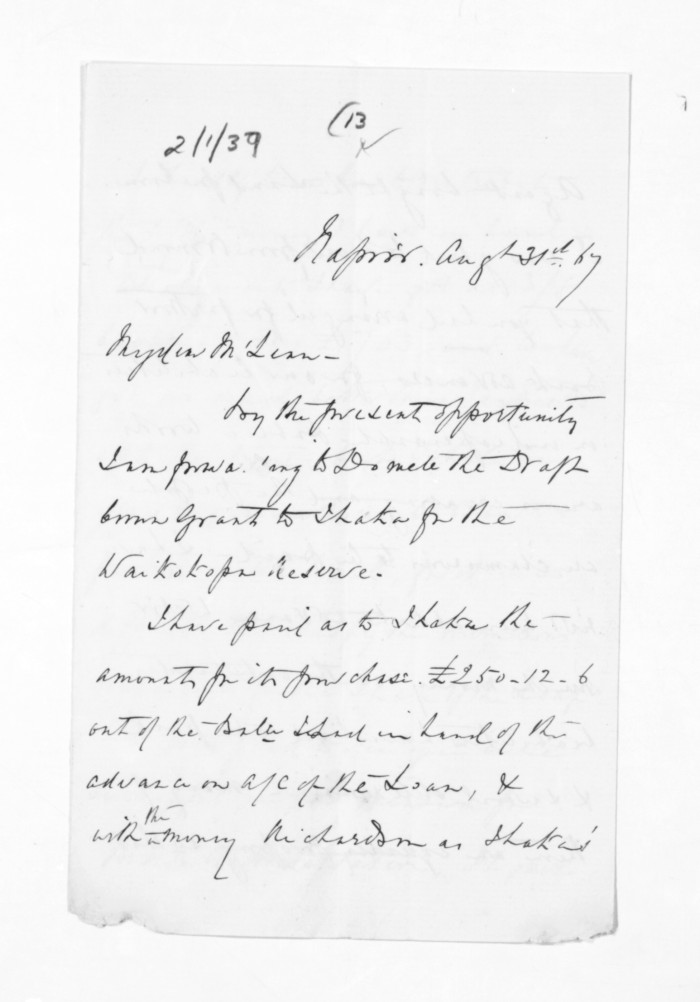 (13
2/1/39
Napier. Augt 31st. 67
My dear McLean -
by the present opportunity
I am forwa.ing to Domett the Draft
Crown Grant to Ihaka for the
Waikokopu Reserve.
I have paid as to Ihaka the
amount for its purchase. £250-12-6
out of the Balce I had in hand of the
advance on a/c of the Loan, &
with the money Richardson as Ihaka's